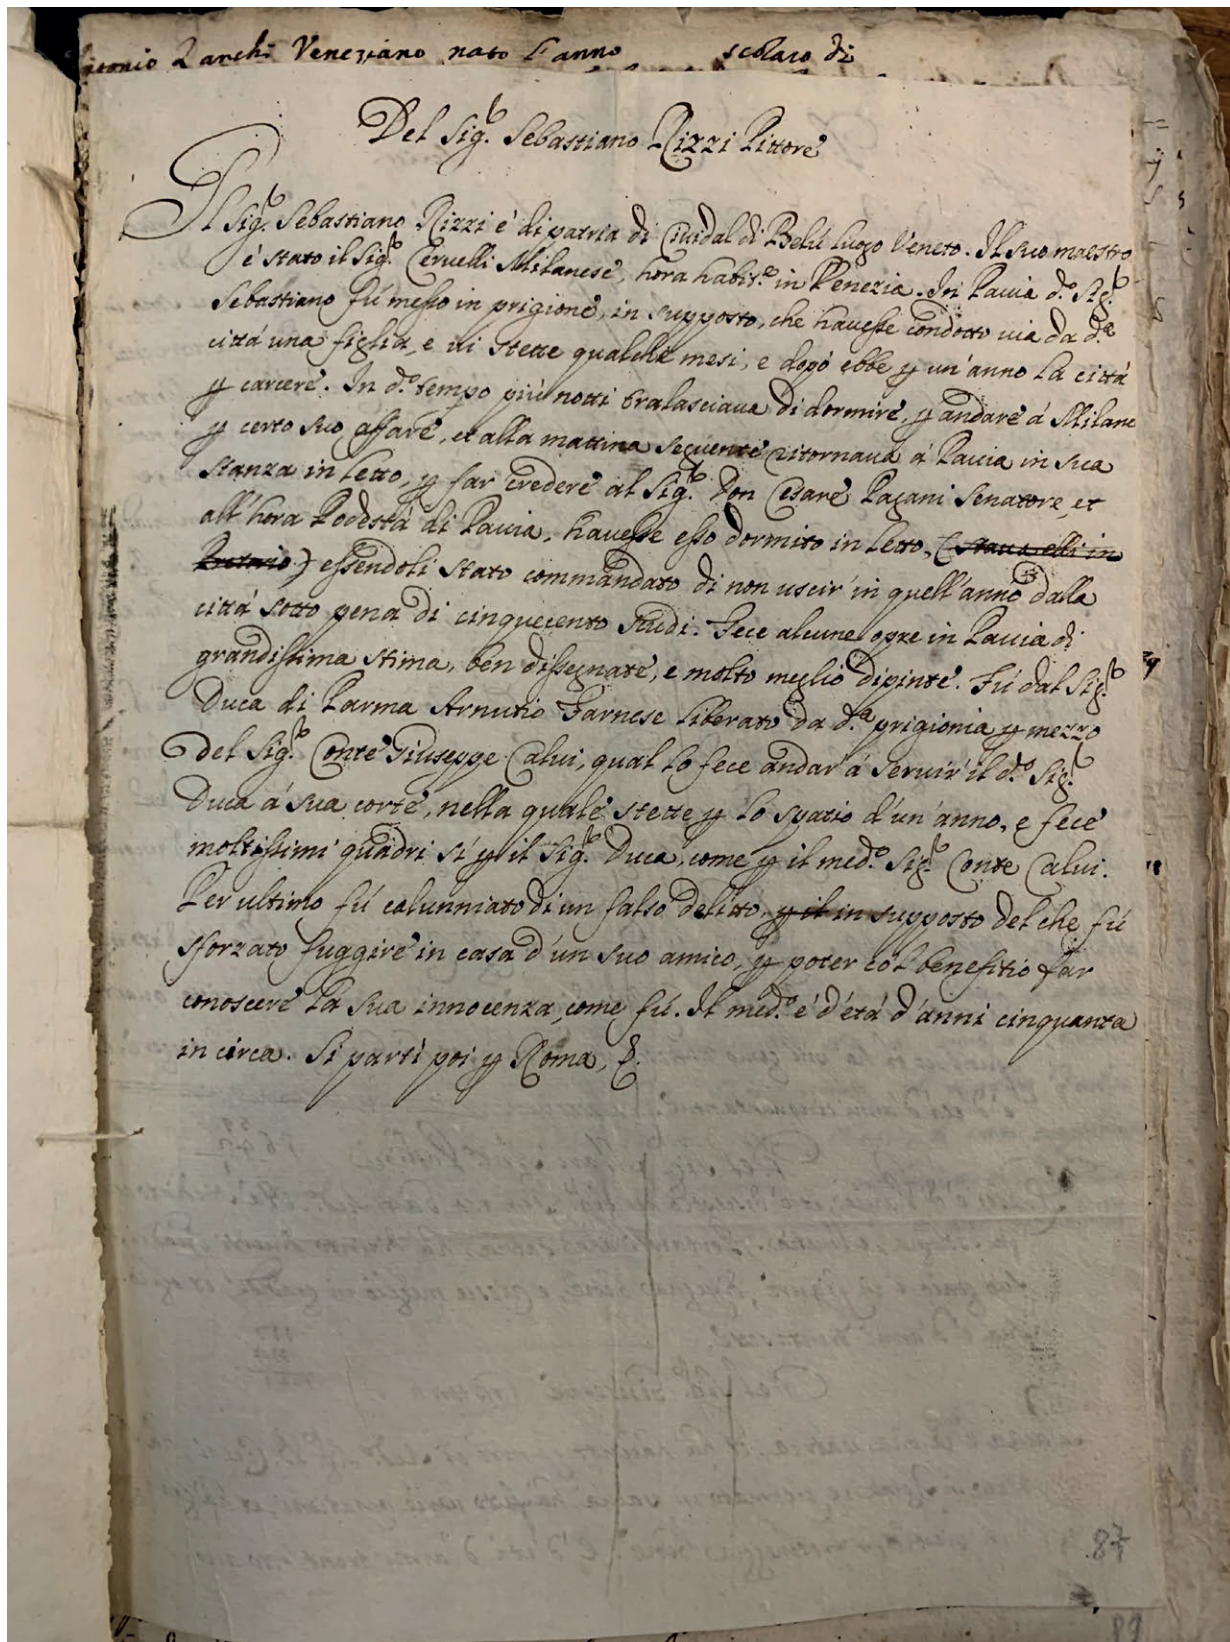 Antonio Zanchi Veneziano nato l'anno scolaro di
Del Sig.r Sebastiano Rizzi Pittore
Il Sig.r Sebastiano Rizzi è di patria di Ciuidal di Belú luogo Veneto. Il suo maestro
è stato il Sig.r Ceruelli Milanese, hora habit.e in Venezia. In Pauia d.o Sig.r
Sebastiano fú messo in prigione, in supposto, che hauesse condotto uia da d.a
cittá una figlia, e ui stette qualche mesi, e dopó ebbe p un'anno la cittá
p carcere. In d.o tempo piú notti tralasciaua di dormire, p andare á Milano
p certo suo affare, et alla mattina seguente ritornaua á Pauia in sua
stanza in letto, p far credere al Sig.r Don Cesare Pagani Senatore, et
all'hora Podestá di Pauia, hauesse esso dormito in letto, (staua elli in
) essendoli stato commandato di non uscir' in quell'anno dalla
cittá sotto pena di cinquecento scudi. Fece alcune opre in Pauia di
grandissima stima, ben dissegnate, e molto meglio dipinte. Fú dal Sig.r
Duca di Parma Arnutio Farnese liberato da d.a prigionia p mezzo
del Sig.r Conte Giuseppe Calui, qual lo fece andar' á seruir' il d.o Sig.r
Duca á sua corte, nella quale stette p lo spatio d'un'anno, e fece
moltissimi quadri sí p il Sig.r Duca, come p il med.o Sig.r Conte Calui.
Per ultimo fú calunniato di un falso delitto, p il in supposto del che fú
sforzato fuggire in casa d'un suo amico, p poter co'l benefitio far
conoscere la sua innocenza, come fú. Il med.o é d'etá d'anni cinquanta
in circa. Si partì poi p Roma, &.
89